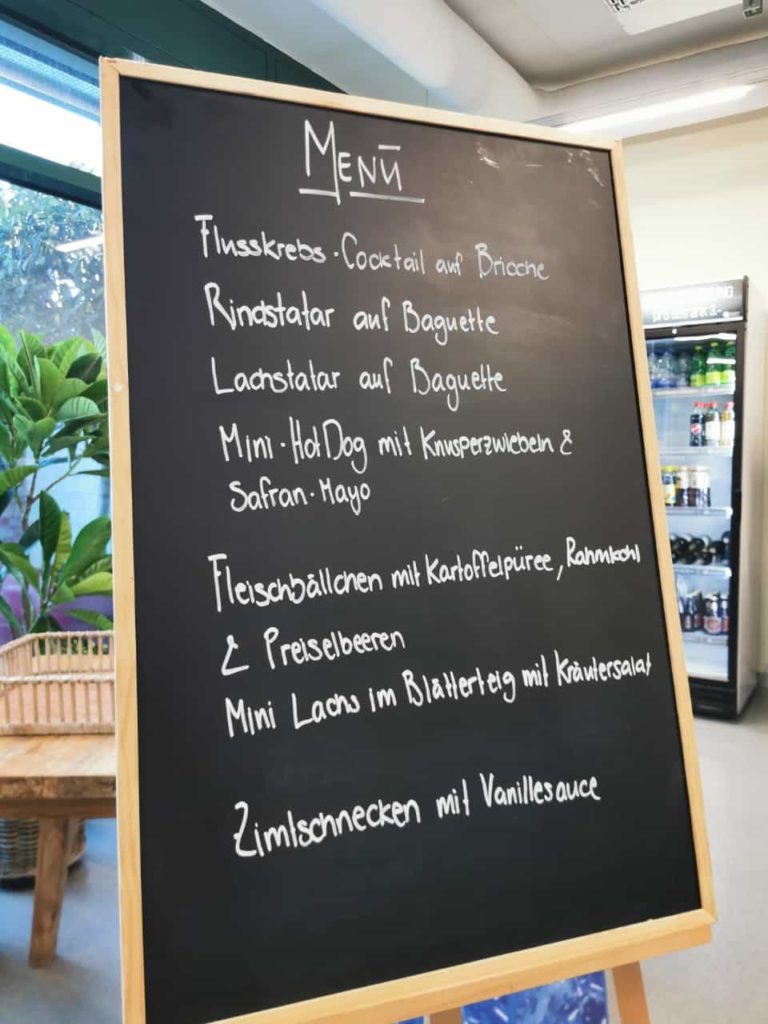 MENÜ
Flusskrebs-Cocktail auf Brioche
Rindstatar auf Baguette
Lachstatar auf Baguette
Mini-HotDog mit Knusperzwiebeln &
Safran-Mayo
Fleischbällchen mit Kartoffelpüree, Rahmkohl
& Preiselbeeren
Mini Lachs im Blätterteig mit Kräutersalat
Zimtschnecken mit Vanillesauce